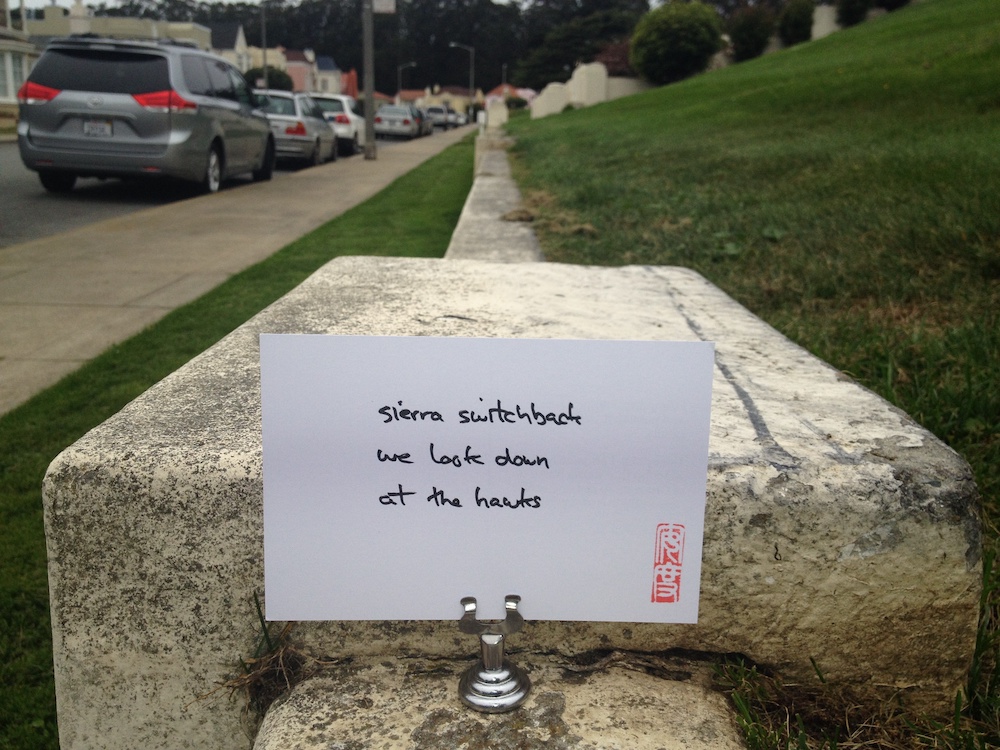 sierra switchback
we look down
at the hawks